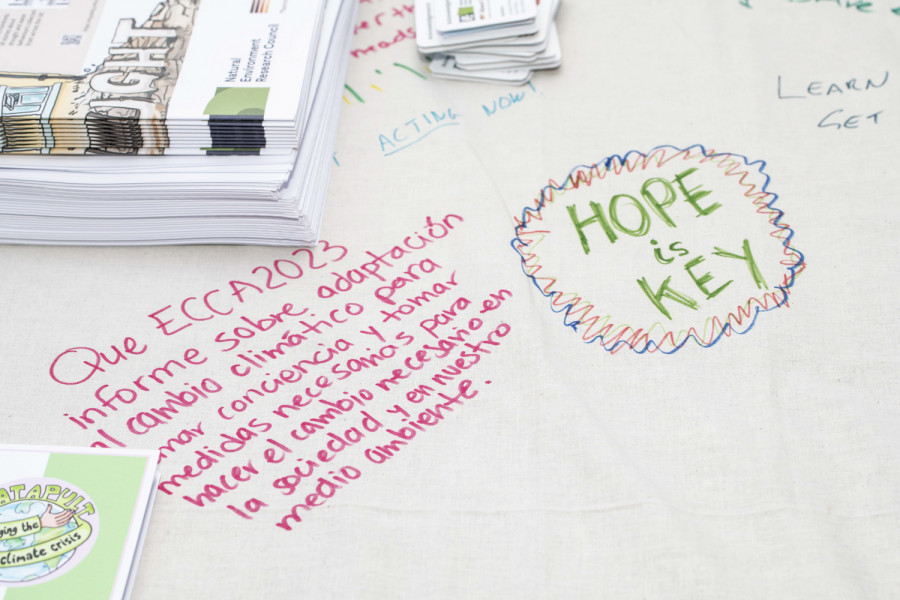 IGHT
Natural
Environment
Research Council
ACTING NOW!
LEARN
GET
HOPE
is
KEY
Que ECCA2023
informe sobre adaptación
al cambio climático para
mar conciencia y tomar
medidas necesarias para
hacer el cambio necesario en
la sociedad y en nuestro
medio ambiente.
CATAPULT
ging the
climate crisis